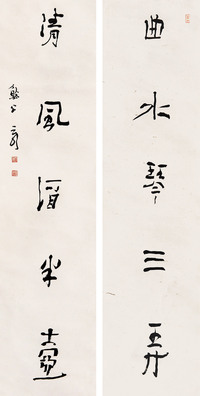 曲水琴三弄
清風酒半壺